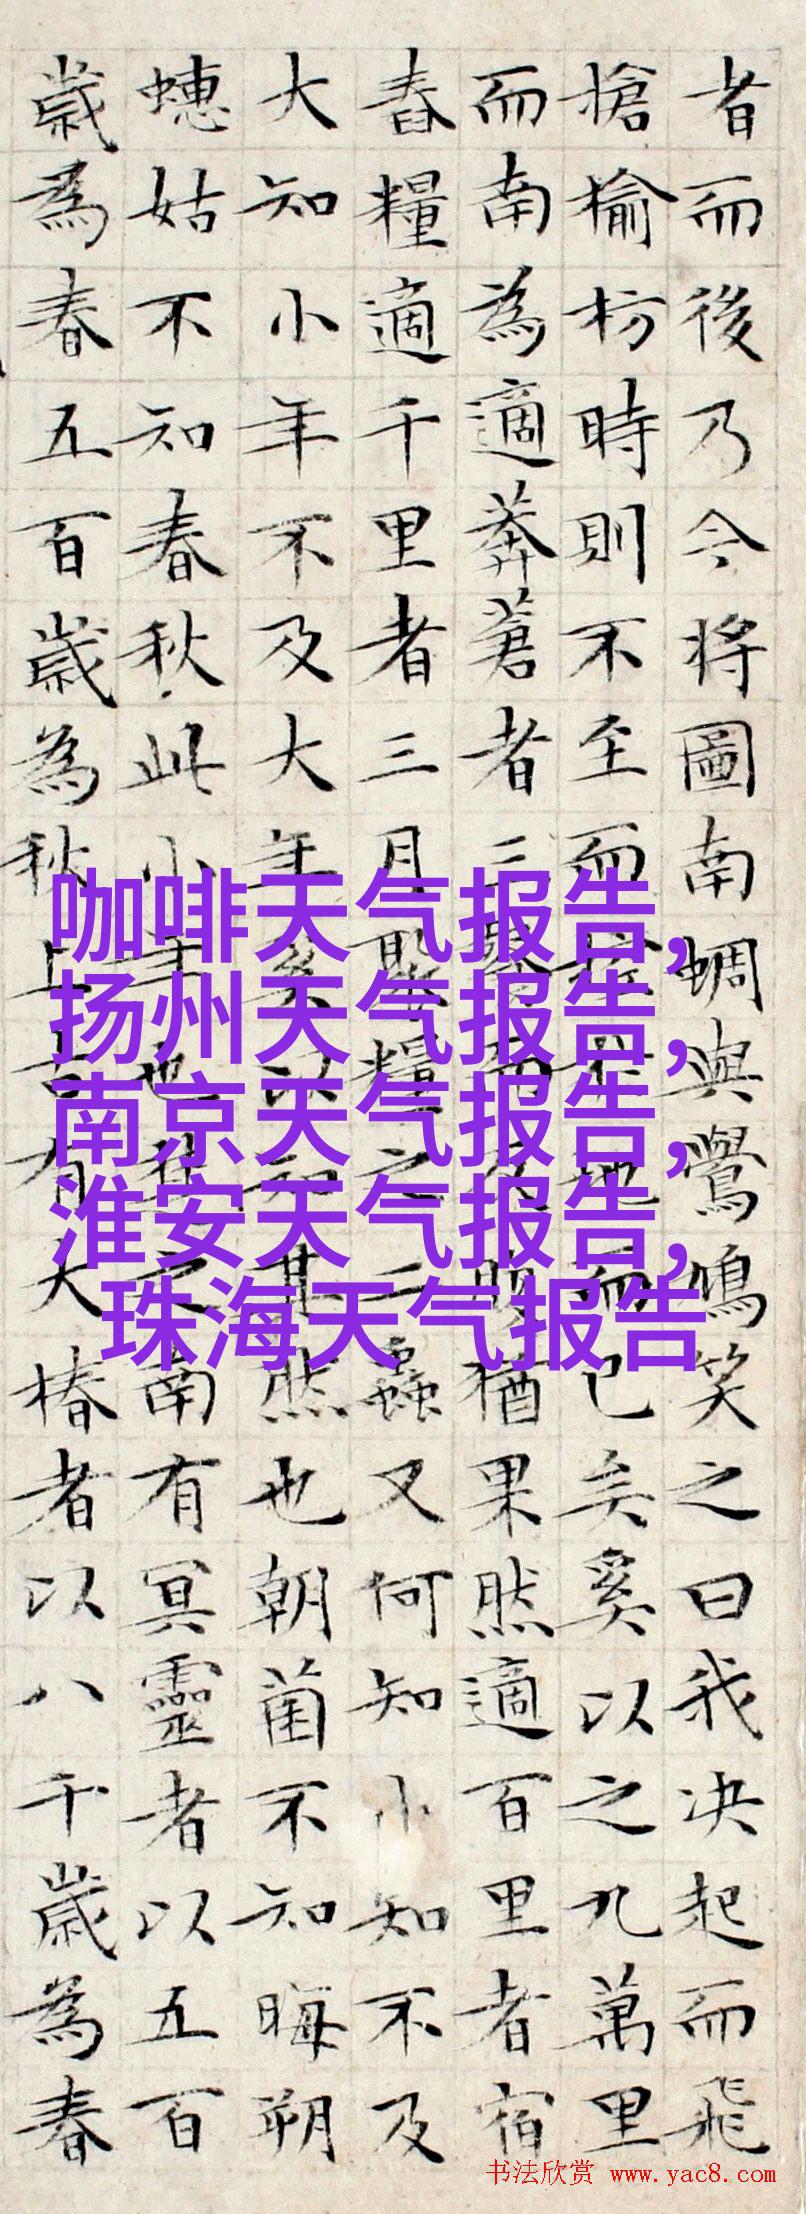 者而後乃今將圖南蜩與鷽鳩笑之曰我决起而飛
搶榆枋時則不至而控於地而已矣奚以之九萬里
而南為適莽蒼者三而反腹猶果然適百里者宿
舂糧適千里者三月聚糧之二蟲又何知小知不及
大知小年不及大年奚以知其然也朝菌不知晦朔
蟪姑不知春秋此小年也楚之南有冥靈者以五百
歲為春五百歲為秋上古有大椿者以八千歲為春
咖啡天气报告,
扬州天气报告,
南京天气报告,
淮安天气报告,
珠海天气报告
书法欣赏 www.yac8.com